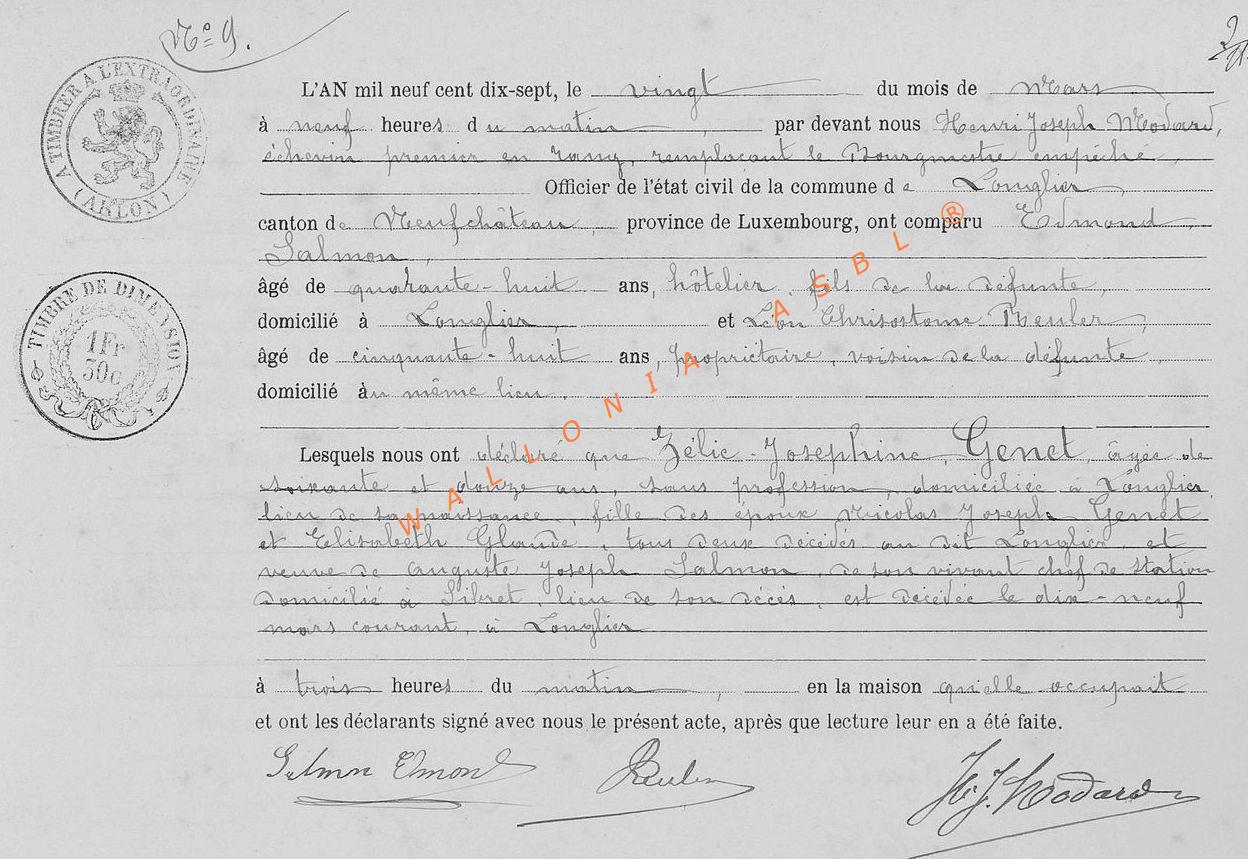 N° 9.
A TIMBRER A L'EXTRAORDINAIRE
(ARLON)
L'AN mil neuf cent dix-sept, le vingt du mois de Mars
à neuf heures du matin, par devant nous Henri Joseph Modard,
échevin premier en rang, remplaçant le Bourgmestre empêché,
Officier de l'état civil de la commune de Longlier,
canton de Neufchâteau, province de Luxembourg, ont comparu Edmond
Salmon,
âgé de quarante-huit ans, hôtelier, fils de la défunte,
TIMBRE DE DIMENSION
1 Fr
30c
domicilié à Longlier, et Léon Chrisostome
âgé de cinquante-huit ans, propriétaire, voisin de la défunte
domicilié au même lieu.
Lesquels nous ont déclaré que Zélie-Josephine, Genet, âgée de
soixante et douze ans, sans profession, domiciliée à Longlier,
lieu de sa naissance, fille des époux Nicolas Joseph Genet
et Elisabeth Glaude, tous deux décédés au dit Longlier, et
veuve de Auguste Joseph Salmon, de son vivant chef de station
domicilié à Sibret, lieu de son décès, est décédée le dix-neuf
mars courant, à Longlier
à trois heures du matin, en la maison qu'elle occupait
et ont les déclarants signé avec nous le présent acte, après que lecture leur en a été faite.
Salmon Edmond
H. J. Modard
WALLONIA ASBL ®